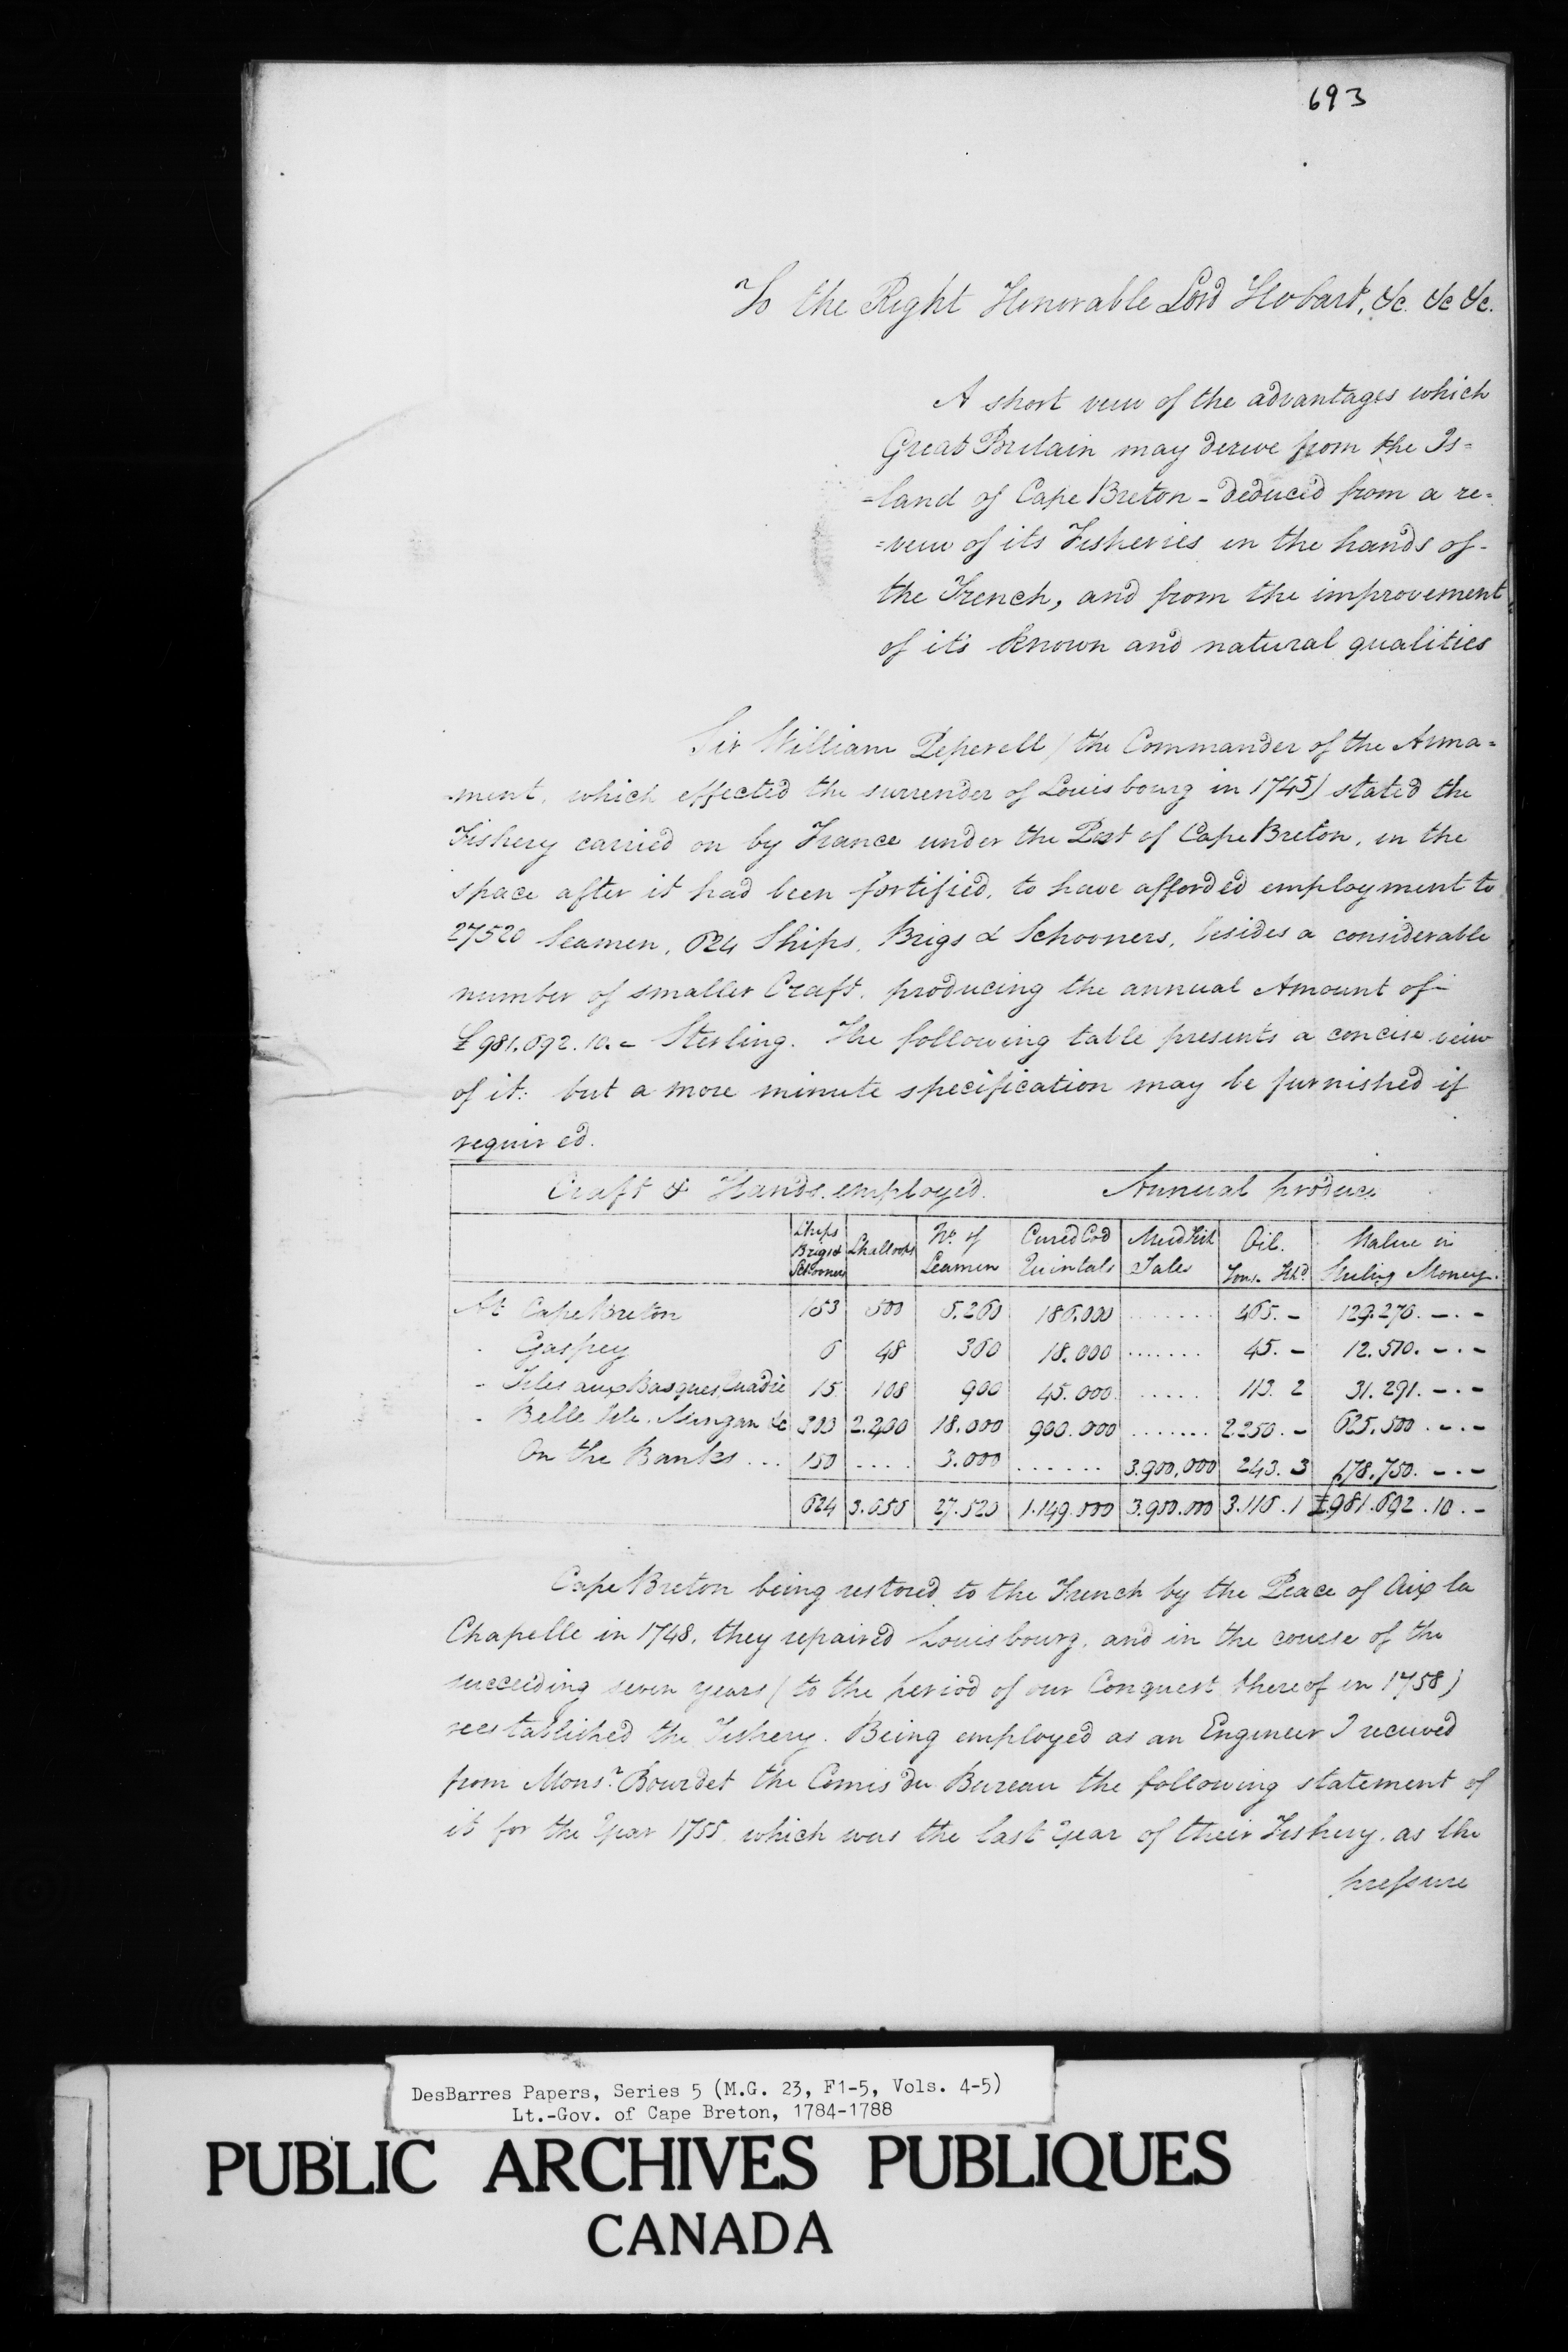 693
To the Right Honorable Lord Hobart, &c. &c &c.
A short veiw of the advantages which
Great Britain may derive from the Is=
=land of Cape Breton - deduced from a re=
=veiw of its Fisheries in the hands of
the French, and from the improvement
of its known and natural qualities
Sir William Peperell (the Commander of the Arma=
=ment, which effected the surrender of Louisbourg in 1745) stated the
Fishery carried on by France under the Post of Cape Breton, in the
space after it had been fortified, to have afforded employment to
27520 Seamen, 624 Ships, Brigs & Schooners, besides a considerable
number of smaller Craft, producing the annual Amount of
£981.692.10.- Sterling. The following table presents a concise veiw
of it: but a more minute specification may be furnished if
required.
Craft & Hands employed. Annual produce
Ships Brigs & Schooners | Shalloops | No. of Seamen | Cured Cod Quintals | Mud Fish Tales | Oil. Tons. Hhd | Value in Sterling Money.
At Cape Breton 153 500 5.260 186.000 ....... 465.- 129.270.-.-
- Gaspey 6 48 360 18.000 ....... 45.- 12.510.-.-
- Isles aux Basques, 15 108 900 45.000 ..... 113.2 31.291.-.-
- Belle Isle. &c 2.400 18.000 900.000 ....... 2.250.- 625.500.-.-
On the Banks ... 150 .... 3.000 ...... 3.900,000 243.3 178.750.-.-
624 27.520 1.149.000 3.900.000 3.116.1 £981.692.10.-
Cape Breton being restored to the French by the Peace of Aix la
Chapelle in 1748, they repaired Louisbourg, and in the course of the
succeeding seven years (to the period of our Conquest thereof in 1758)
reestablished the Fishery. Being employed as an Engineer I received
from Monsr. Bourdet the Comis du Bureau the following statement of
it for the Year 1755, which was the last Year of their Fishery, as the
pressure
DesBarres Papers, Series 5 (M.G. 23, F1-5, Vols. 4-5)
Lt.-Gov. of Cape Breton, 1784-1788
PUBLIC ARCHIVES PUBLIQUES
CANADA